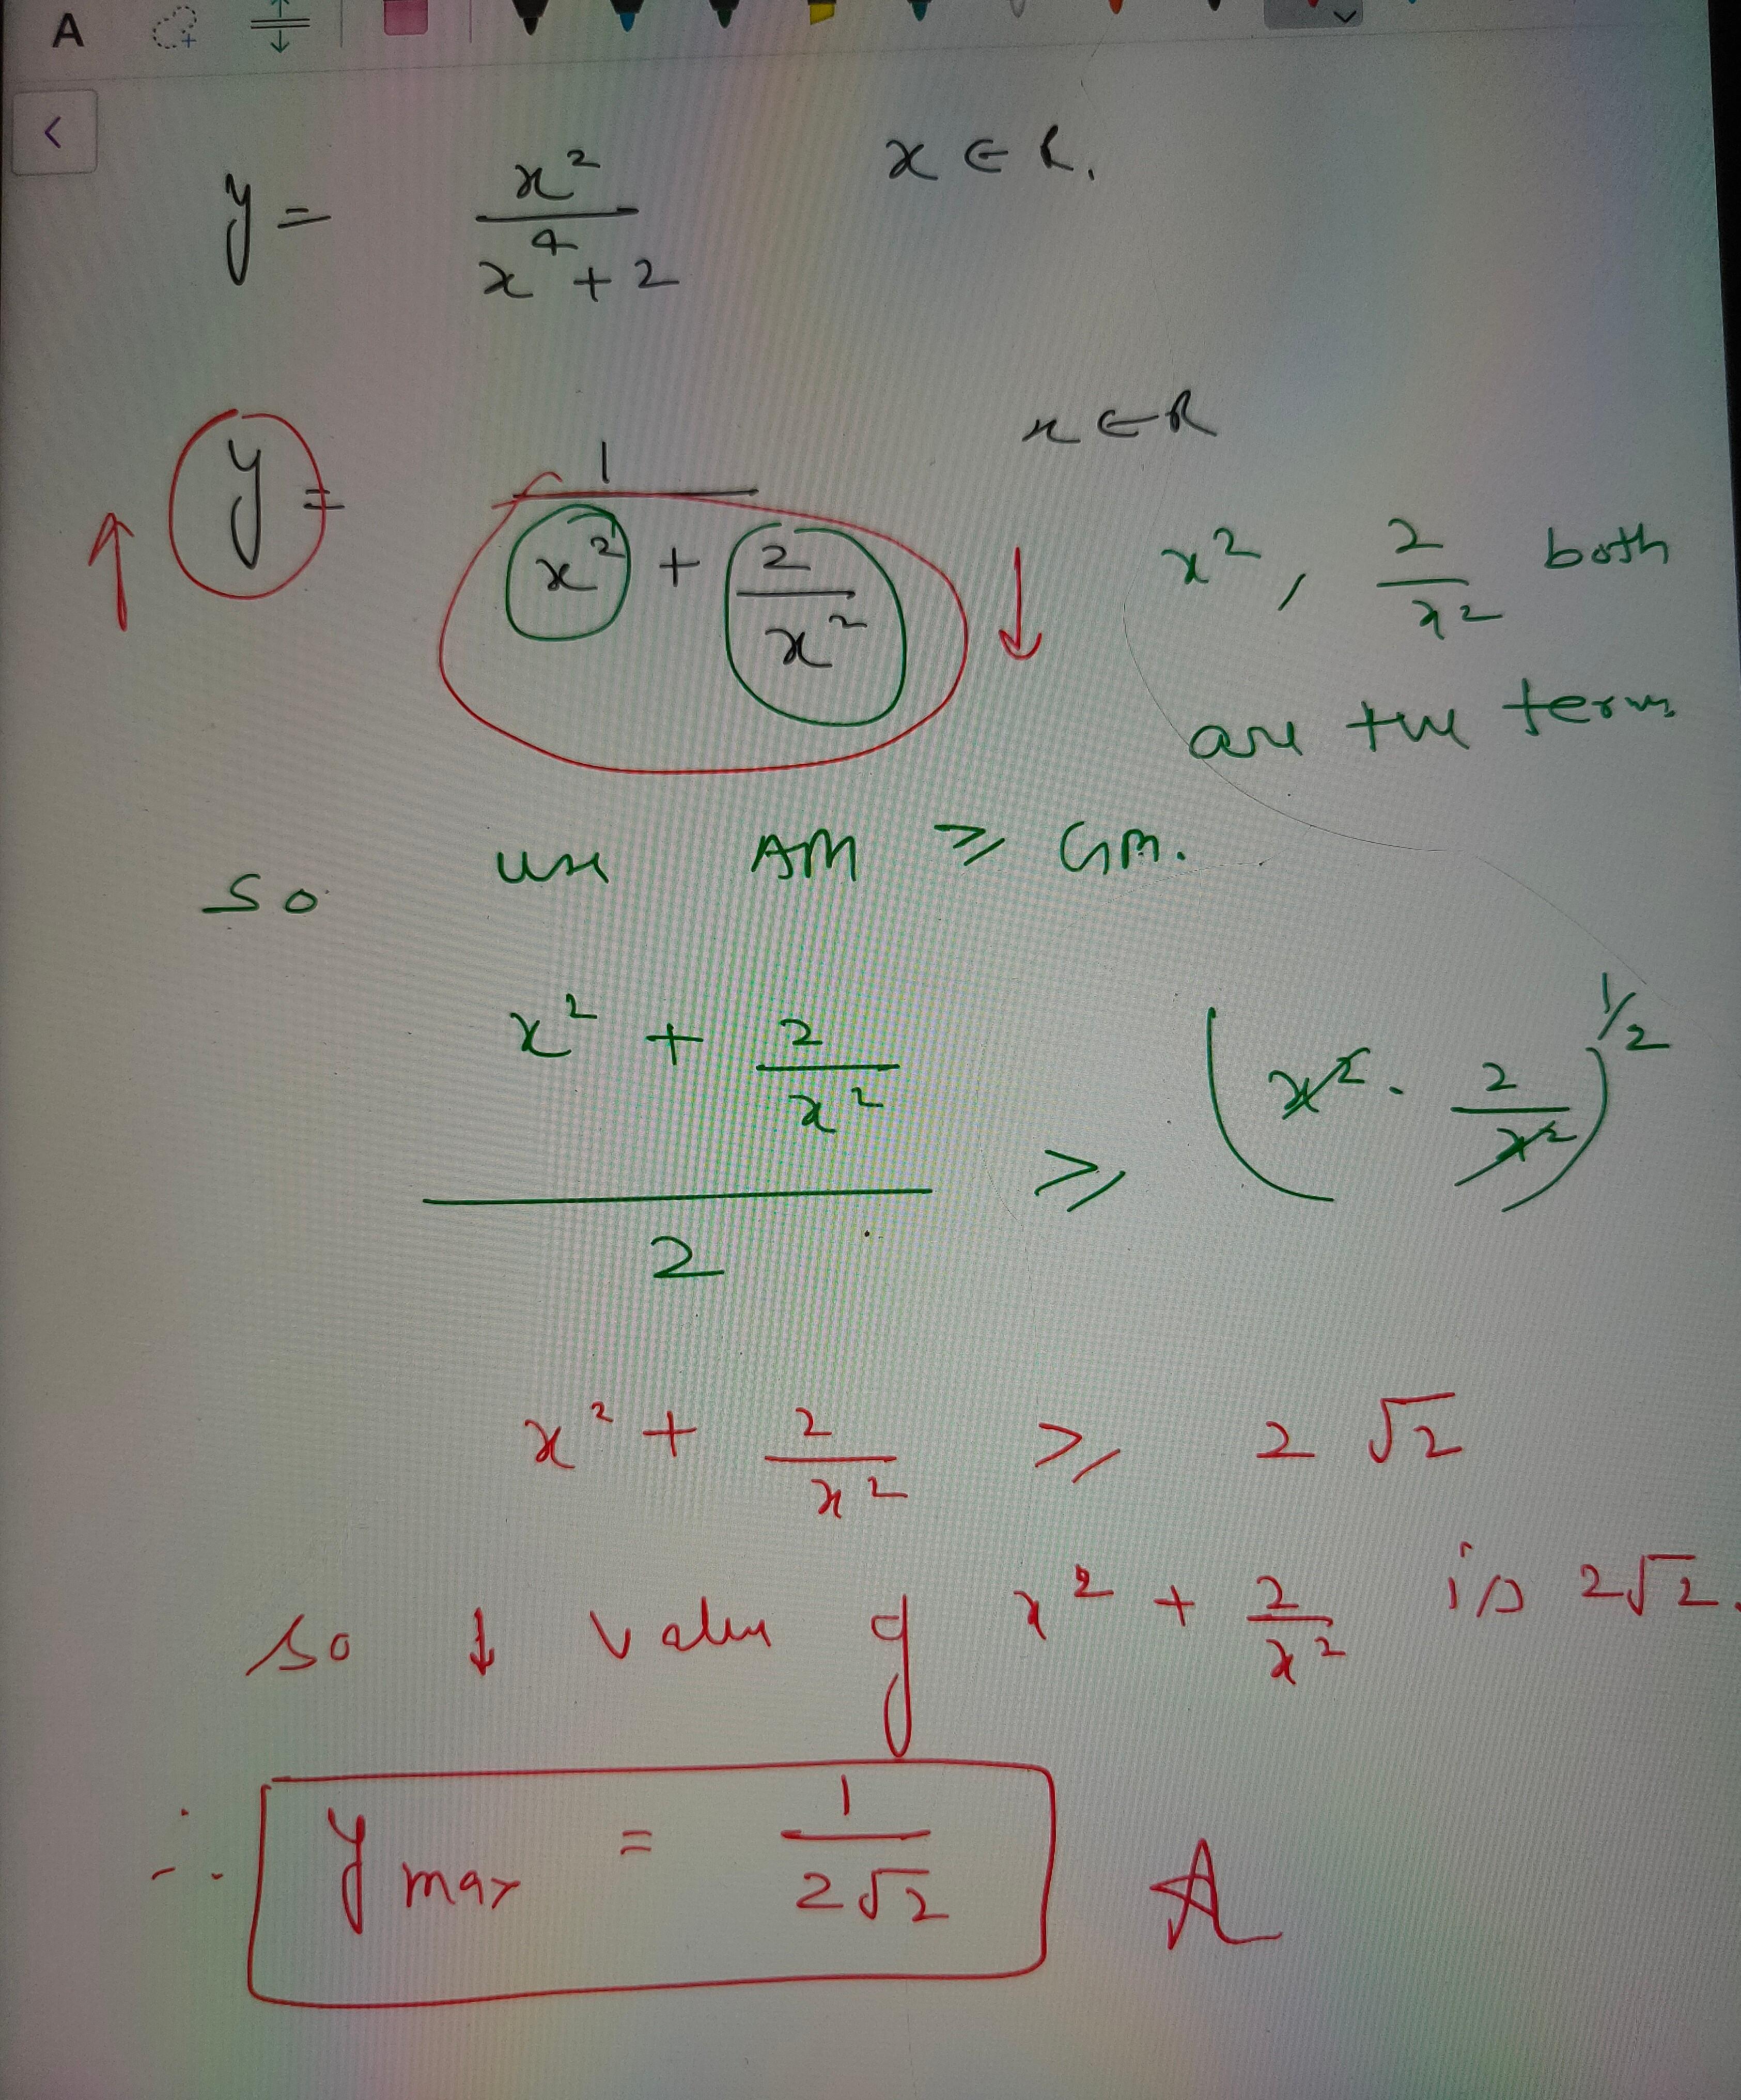 A
y = x²/(x⁴ + 2) x ∈ R.
y = 1/(x² + 2/x²) x ∈ R
x², 2/x² both
are +ve terms
so use AM ≥ GM.
(x² + 2/x²)/2 ≥ (x² · 2/x²)^(1/2)
x² + 2/x² ≥ 2√2
so ↓ value of x² + 2/x² is 2√2.
∴ y max = 1/(2√2) A